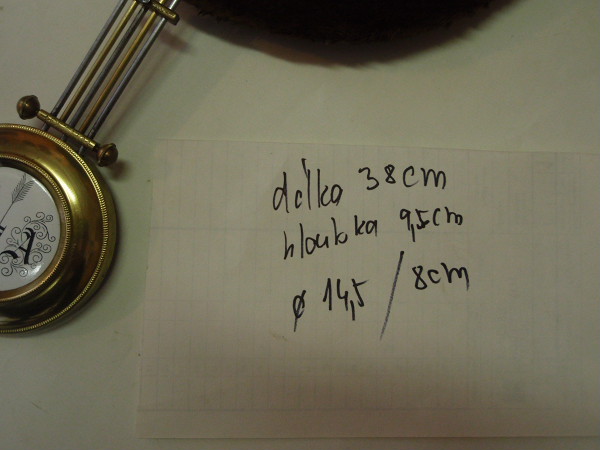 délka 38cm
hloubka 9,5cm
ø 14,5 / 8cm